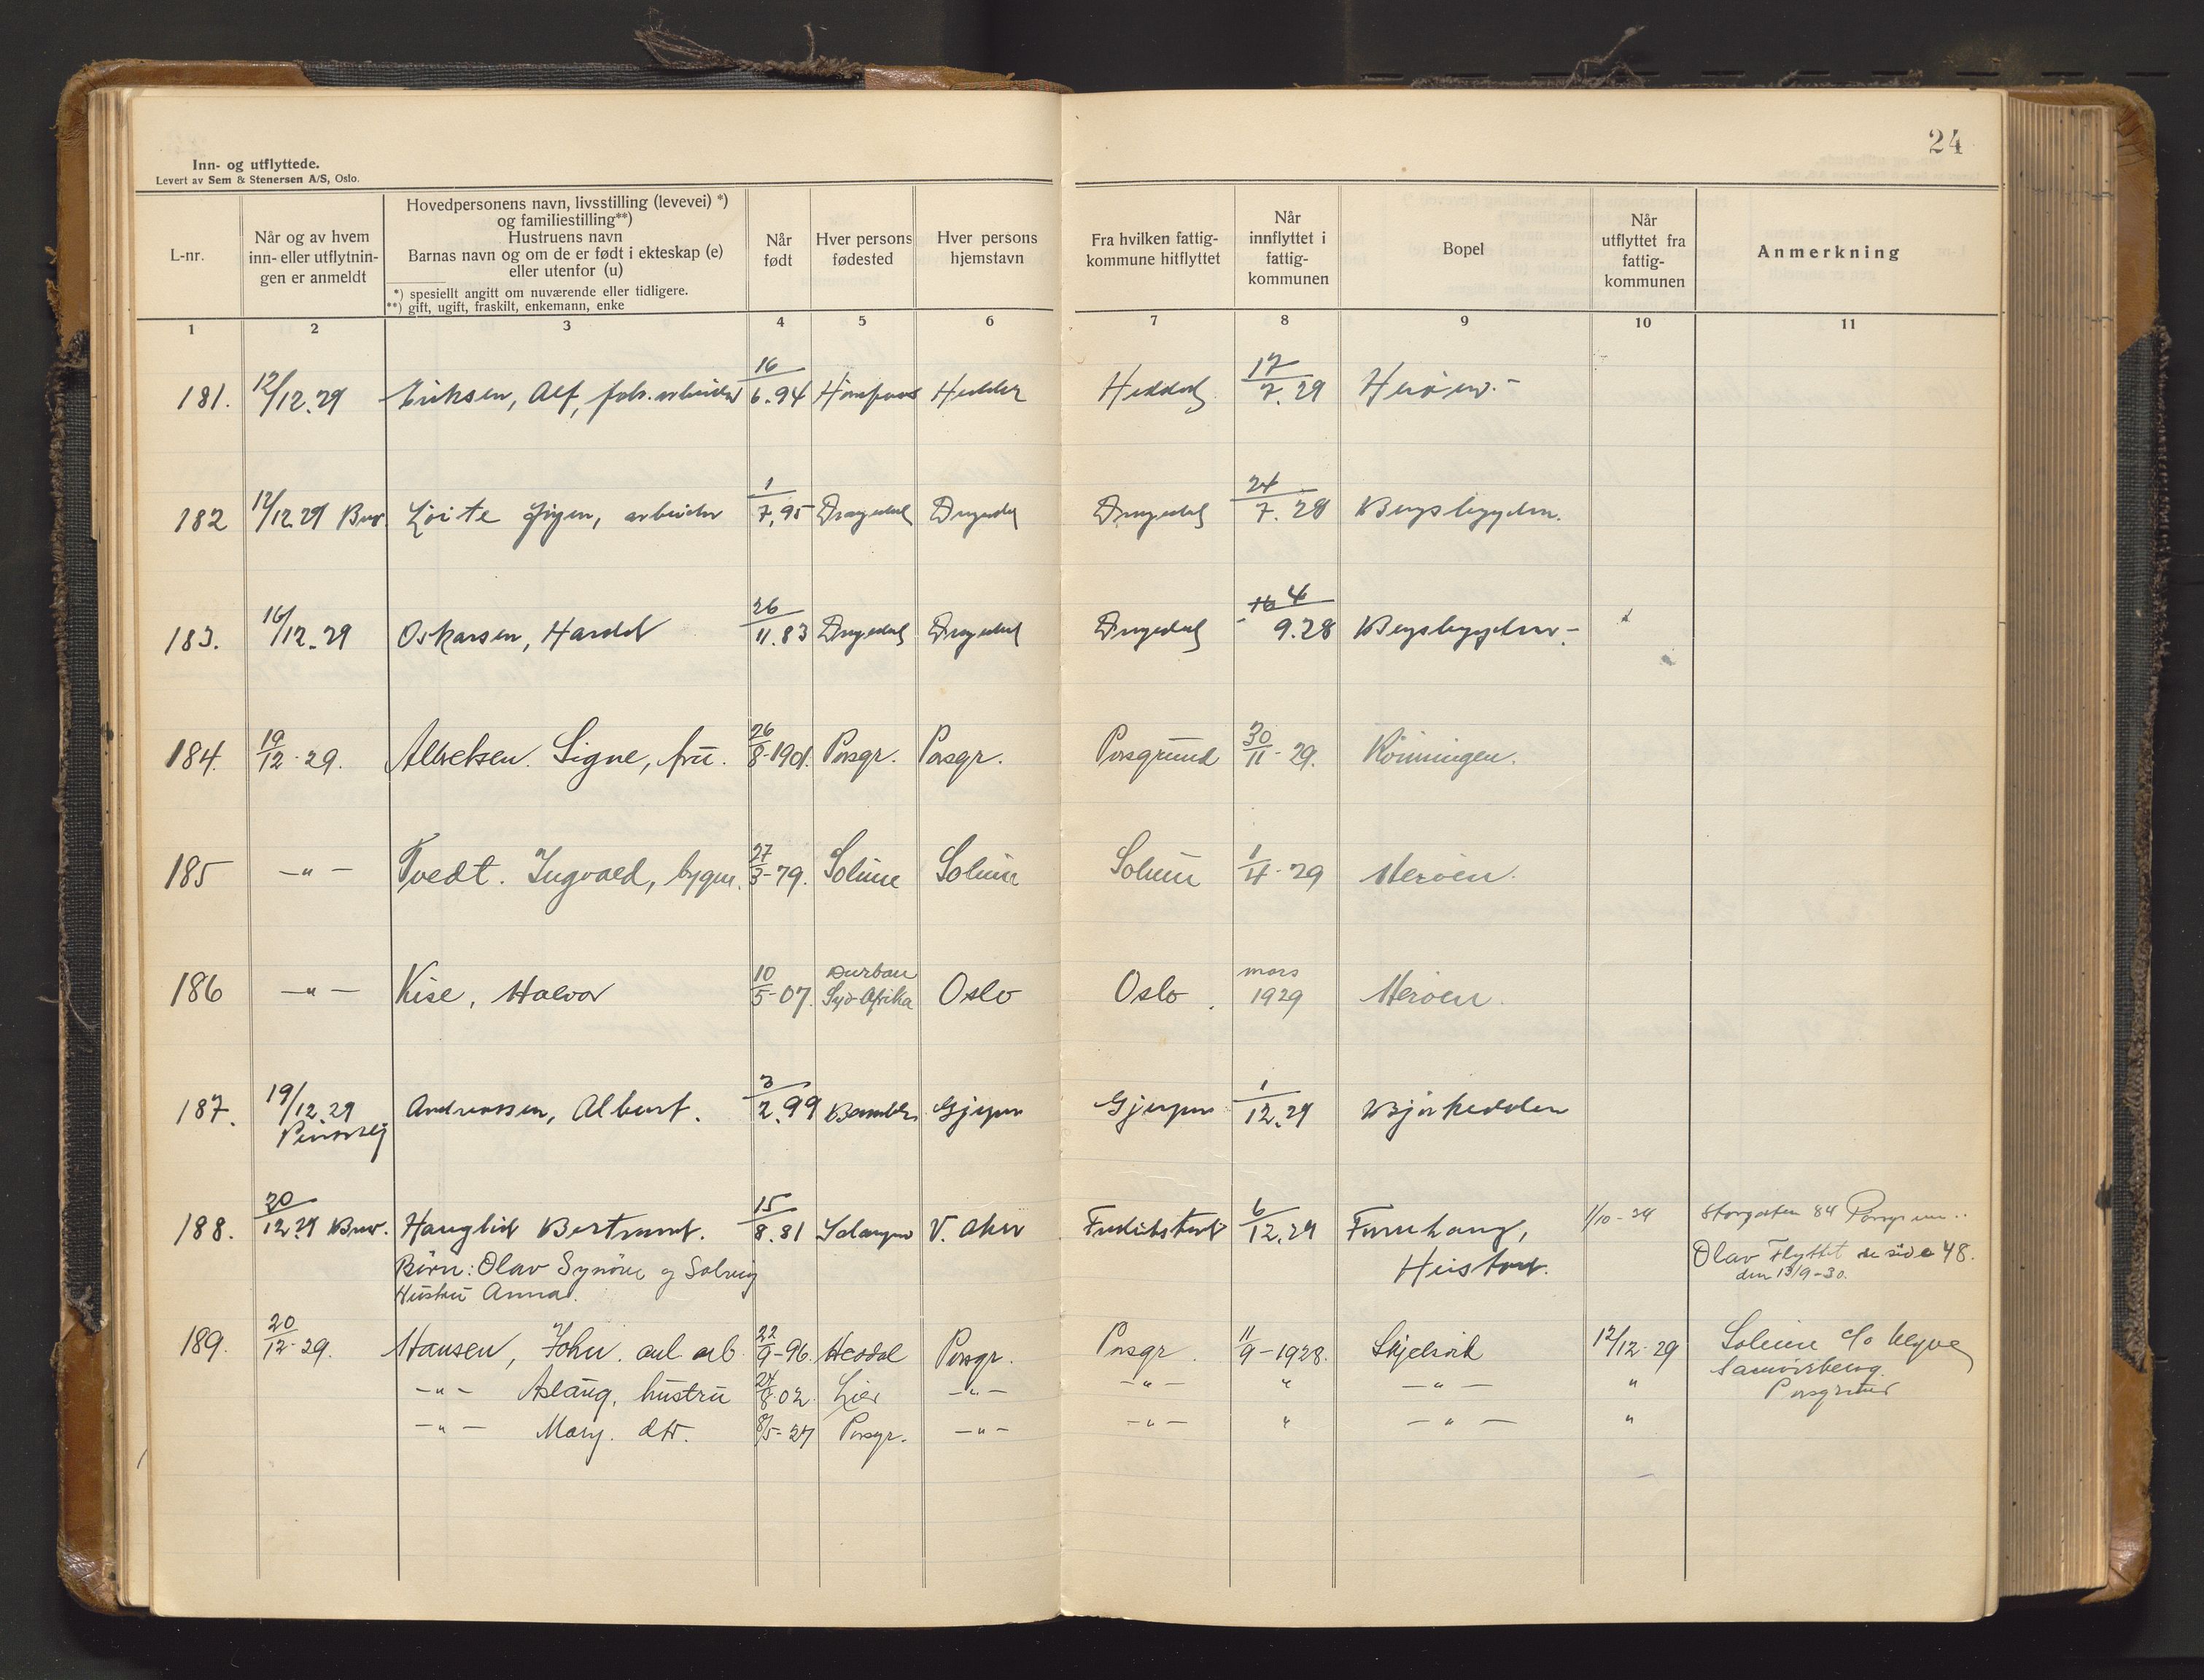 24
Inn- og utflyttede.
Levert av Sem & Stenersen A/S, Oslo.
L-nr.
Når og av hvem
inn- eller utflytnin-
gen er anmeldt
Hovedpersonens navn, livsstilling (levevei) *)
og familiestilling**)
Hustruens navn
Barnas navn og om de er født i ekteskap (e)
eller utenfor (u)
*) spesiellt angitt om nuværende eller tidligere.
**) gift, ugift, fraskilt, enkemann, enke
Når
født
Hver persons
fødested
Hver persons
hjemstavn
Fra hvilken fattig-
kommune hitflyttet
Når
innflyttet i
fattig-
kommunen
Bopel
Når
utflyttet fra
fattig-
kommunen
Anmerkning
1 2 3 4 5 6 7 8 9 10 11
181. 12/12.29 Eriksen, Alf, fabr.arbeider 16/6.94 Heddal 17/7.29 Herøen.-
182 12/12.29 arbeider 1/7.95 Drangedal Drangedal Drangedal 24/7.28 Bergsbygden.
183. 16/12.29 Oskarsen, Harald 26/11.83 Drangedal Drangedal Drangedal 4/9.28 Bergsbygden.-
184. 19/12-29. Albretsen. Signe, frü. 26/8-1901. Porsgr. Porsgr. Porsgrund 30/11-29. Rönningen.
185 -"- Tvedt. Ingvald, bygm. 27/3-79. Solum Solum Solum 1/4-29 Heröen.
186 -"- Kise, Halvor 10/5-07. Durban Syd-Afrika Oslo Oslo. mars 1929 Heröen.
187. 19/12.29 Andreassen, Albert. 3/2.99 Bamble Gjerpen Gjerpen 1/12.29 Bjørkedalen
188. 20/12.29 Brev. Hauglid Bertramt. 15/8.81 V. Aker Fredrikstad 6/12.29 Furuhaug, 1/10-34 Storgaten 84 Porsgrunn..
Heistad.
Børn: Olav Synöve og Solveig
Olav Flyttet se side 48.
den 13/9-30.
Hüstrü Anna.
189. 20/12-29. Hansen, John. anl. arb. 22/9-96. Heddal Porsgr. Porsgr. 11/9-1928. Skjelsvik 12/12-29 Solum c/o Klyve
-"- Aslaüg, hüstrü 24/8-02. Lier -"- -"- " -"- "
Porsgrund
-"- Mary. dtr. 8/5-27 Porsgr. -"- -"- " -"- "